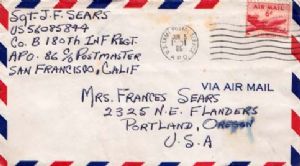 Sgt. J. F. SEARS
US56085844
Co. B 180th INF REGT.
APO. 86 C/O POSTMASTER
SAN FRANCISCO, CALIF
AIR MAIL
6¢
A.P.O.
VIA AIR MAIL
MRS. FRANCES SEARS
2325 N.E. FLANDERS
PORTLAND, OREGON
U.S.A